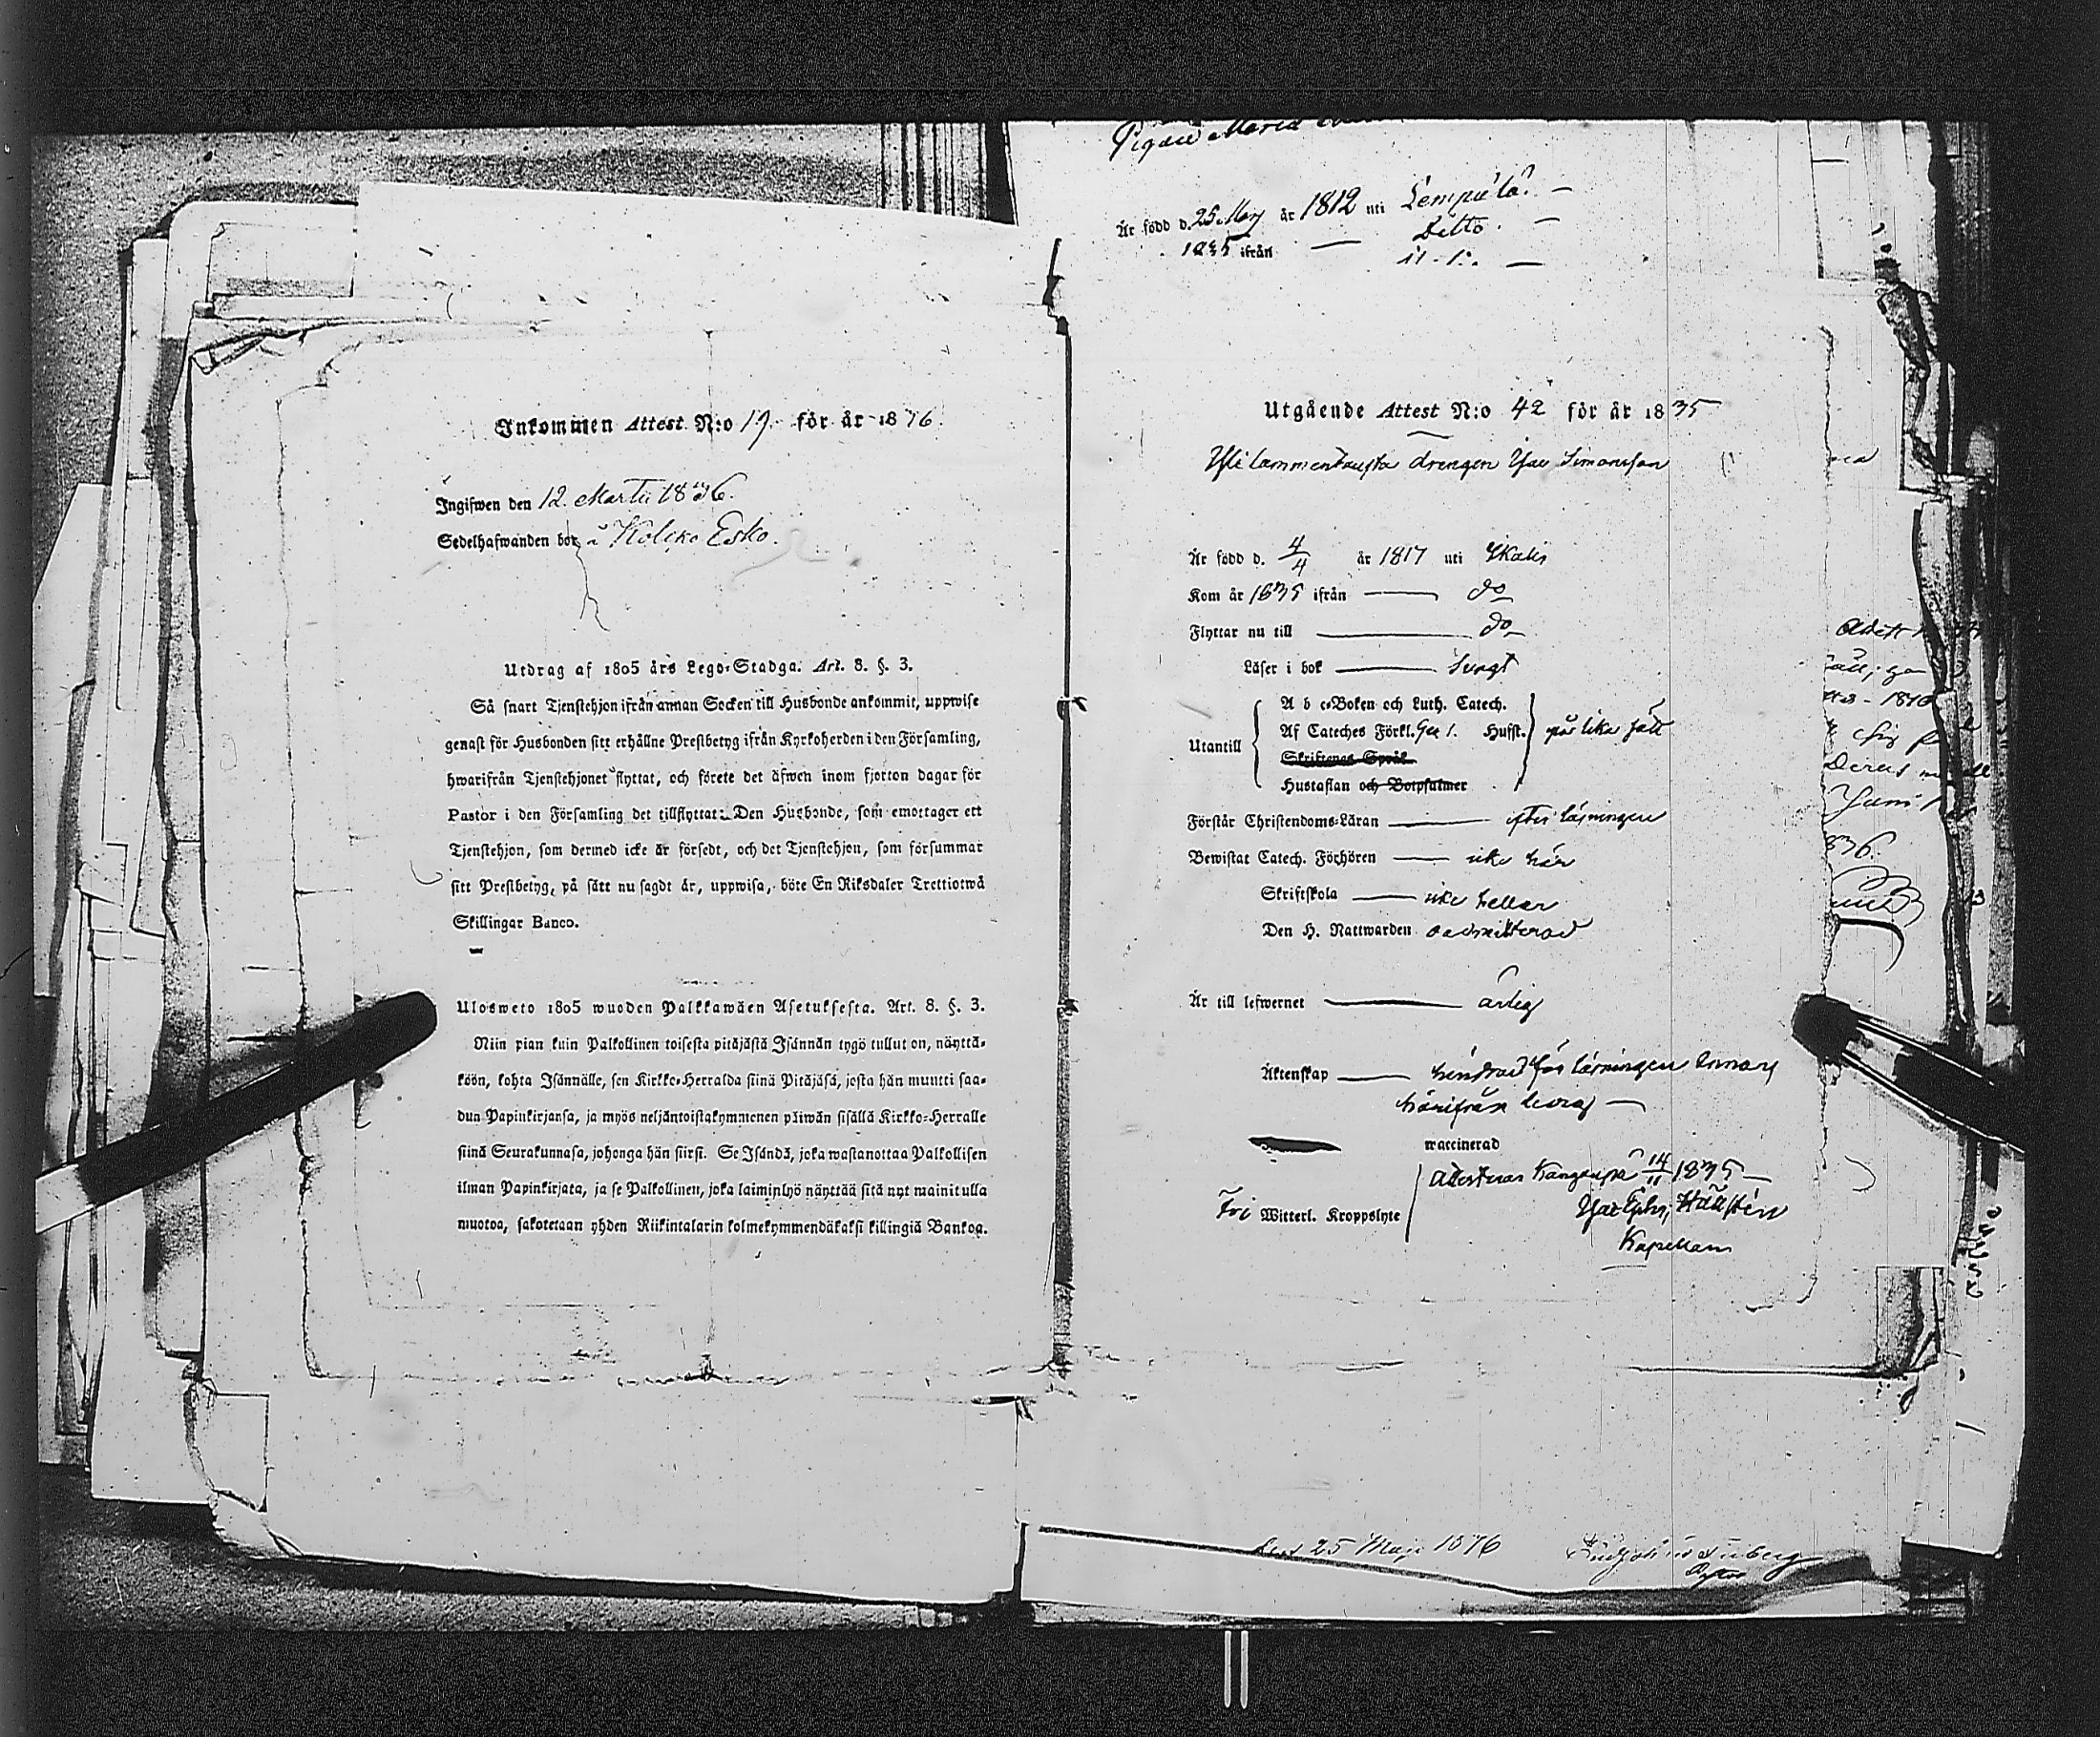 Inkommen Attest N:o 19 för år 1836
Ingifwen den 12 Martii 1836.
Sedelhafwanden bor å Kolcko Esko.
Utdrag af 1805 års Lego-Stadga. Art. 8. §. 3.
Så snart Tjenstehjon ifrån annan Socken till Husbonde ankommit, uppwise
genast för Husbonden sitt erhållne Prestbetyg ifrån Kyrkoherden i den Församling,
hwarifrån Tjenstehjonet flyttat, och förete det äfwen inom fjorton dagar för
Pastor i den Församling det tillflyttat: Den Husbonde, som emottager ett
Tjenstehjon, som dermed icke är försedt, och det Tjenstehjon, som försummar
sitt Prestbetyg, på sätt nu sagdt är, uppwisa, böte En Riksdaler Trettiotwå
Skillingar Banco.
Ulosweto 1805 wuoden Palkkawäen Asetuksesta. Art. 8. §. 3.
Niin pian kuin Palkollinen toisesta pitäjästä Isännän tygö tullut on, näyttä-
köön, kohta Isännälle, sen Kirkko-Herralda siinä Pitäjäsä, josta hän muutti saa-
dun Papinkirjansa, ja myös neljäntoistakymmenen päiwän sisällä Kirkko-Herralle
siinä Seurakunnasa, johonga hän siirsi. Se Isändä, joka wastanottaa Palkollisen
ilman Papinkirjata, ja se Palkollinen, joka laiminlyö näyttää sitä nyt mainitulla
muotoa, sakotetaan yhden Riikintalarin kolmekymmendäkaksi killingiä Bankoa.
Pigan Maria
Är född d. 25 Maij år 1812 uti Lempälä. —
Ditto. —
1835 ifrån —
Utgående Attest N:o 42 för år 1835
drengen Isac Simonsson
Är född d. 4/4 år 1817 uti Ikalis
Kom år 1835 ifrån — do
Flyttar nu till — do
Läser i bok — svagt
Utantill
A b c-Boken och Luth. Catech.
Af Cateches Förkl. Hufst.
på lika sätt
Skriftenes Språk
Hustaflan och Botpsalmer
Förstår Christendoms-Läran — efter läsningen
Bewistat Catech. Förhören — icke här
Skriftskola — icke heller
Den H. Nattwarden oadmitterad
Är till lefwernet — ärlig
Äktenskap — hindrad för läsningen
härifrån ledig —
waccinerad
Attesteras Kangasala 14/11 1835 —
Fri Witterl. Kroppslyte
Kapellan
836.
den 25 Maji 1836